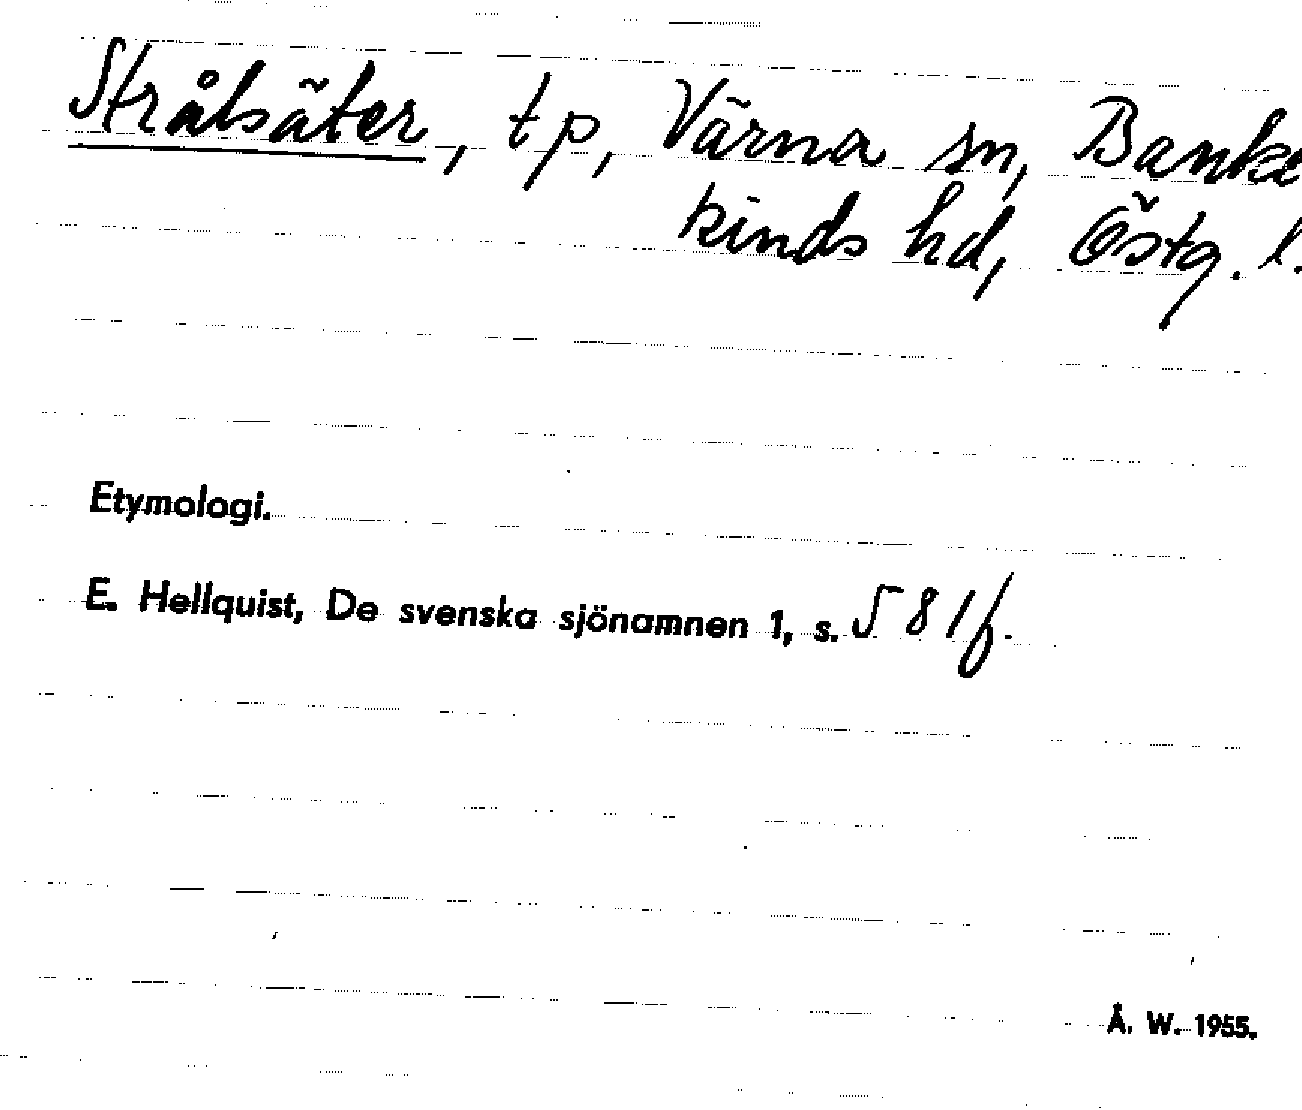 Strålsäter, tp, Värna sn, Banke
kinds hd, Östg. l.
Etymologi.
E. Hellquist, De svenska sjönamnen 1, s. 581f.
Å. W. 1955.